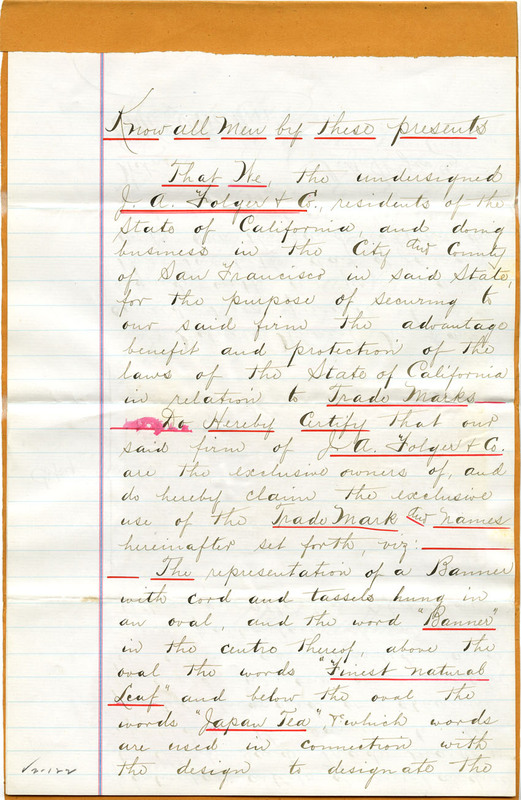 Know all Men by these presents
That We, the undersigned
J. A. Folger & Co., residents of the
State of California, and doing
business in the City and County
of San Francisco in said State,
for the purpose of securing to
our said firm the advantage
benefit and protection of the
laws of the State of California
in relation to Trade Marks
Do Hereby Certify that our
said firm of J. A. Folger & Co.
are the exclusive owners of, and
do hereby claim the exclusive
use of the Trade Mark and names
hereinafter set forth, viz:
The representation of a Banner
with cord and tassels hung in
an oval, and the word "Banner"
in the centre thereof, above the
oval the words "Finest Natural
Leaf" and below the oval the
words "Japan Tea", & which words
are used in connection with
the design to designate the